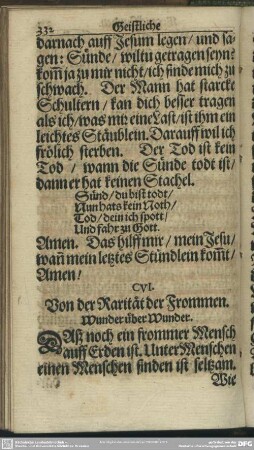 332 Geistliche
darnach auff Jesum legen / und sa-
gen: Sünde / wiltu getragen seyn?
kom̃ ja zu mir nicht / ich finde mich zu
schwach. Der Mann hat starcke
Schultern / kan dich besser tragen
als ich / was mir eine Last / ist ihm ein
leichtes Stäublein. Darauff wil ich
frölich sterben. Der Tod ist kein
Tod / wann die Sünde todt ist /
dann er hat keinen Stachel.
Sünd / du bist todt /
Nun hats kein Noth /
Tod / dein ich spott /
Und fahr zu Gott.
Amen. Das hilff mir / mein Jesu /
wañ mein letztes Stündlein kom̃t /
Amen /
CVI.
Von der Rarität der Frommen.
Wunder über Wunder.
DAß noch ein frommer Mensch
auff Erden ist. Unter Menschen
einen Menschen finden ist seltzam.
Wie
DFG